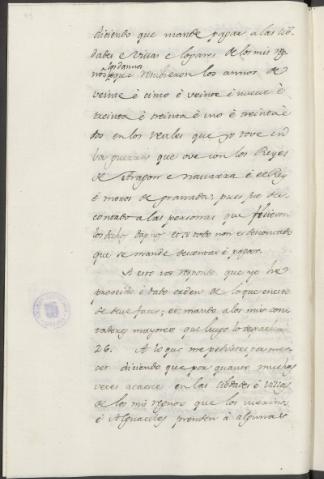 diciendo que mande pagar a las cib
dades e villas e logares de los mis rg
nos los dannos que rescibieron los annos de
veinte é cinco é veinte é nueve é
treinta é treinta é uno é treinta é
dos en los reales que yo tove en
guerras que ove con los Reyes
de Aragon e navarra é el Rey
é moros de granada; pues fue des
contado a las personas que ficieron
los dichos dapnos et si todo non es descontado
que se mande descontar é pagar.
A esto vos respondo que yo he
proveido é dado orden de lo que en esto
se deve facer; et mando a los mis con
tadores mayores que luego lo
26. A lo que me pedistes por mer
cet diciendo que por quanto muchas
veces acaece en las cibdades é villas
de los mis regnos que los merinos
é Alguaciles prenden á algunas